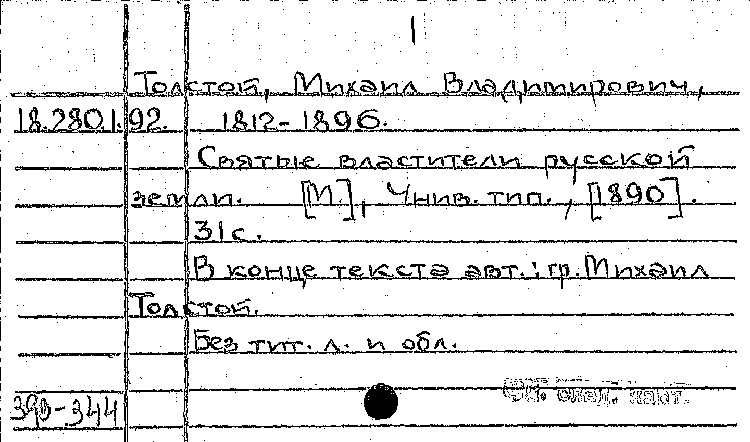 1
Толстой, Михаил Владимирович,
18.280.1.92. 1812-1896.
Святые властители русской
земли. [М.], Унив. тип., [1890].
31с.
В конце текста авт.: гр. Михаил
Толстой.
Без тит. л. и обл.
390-344